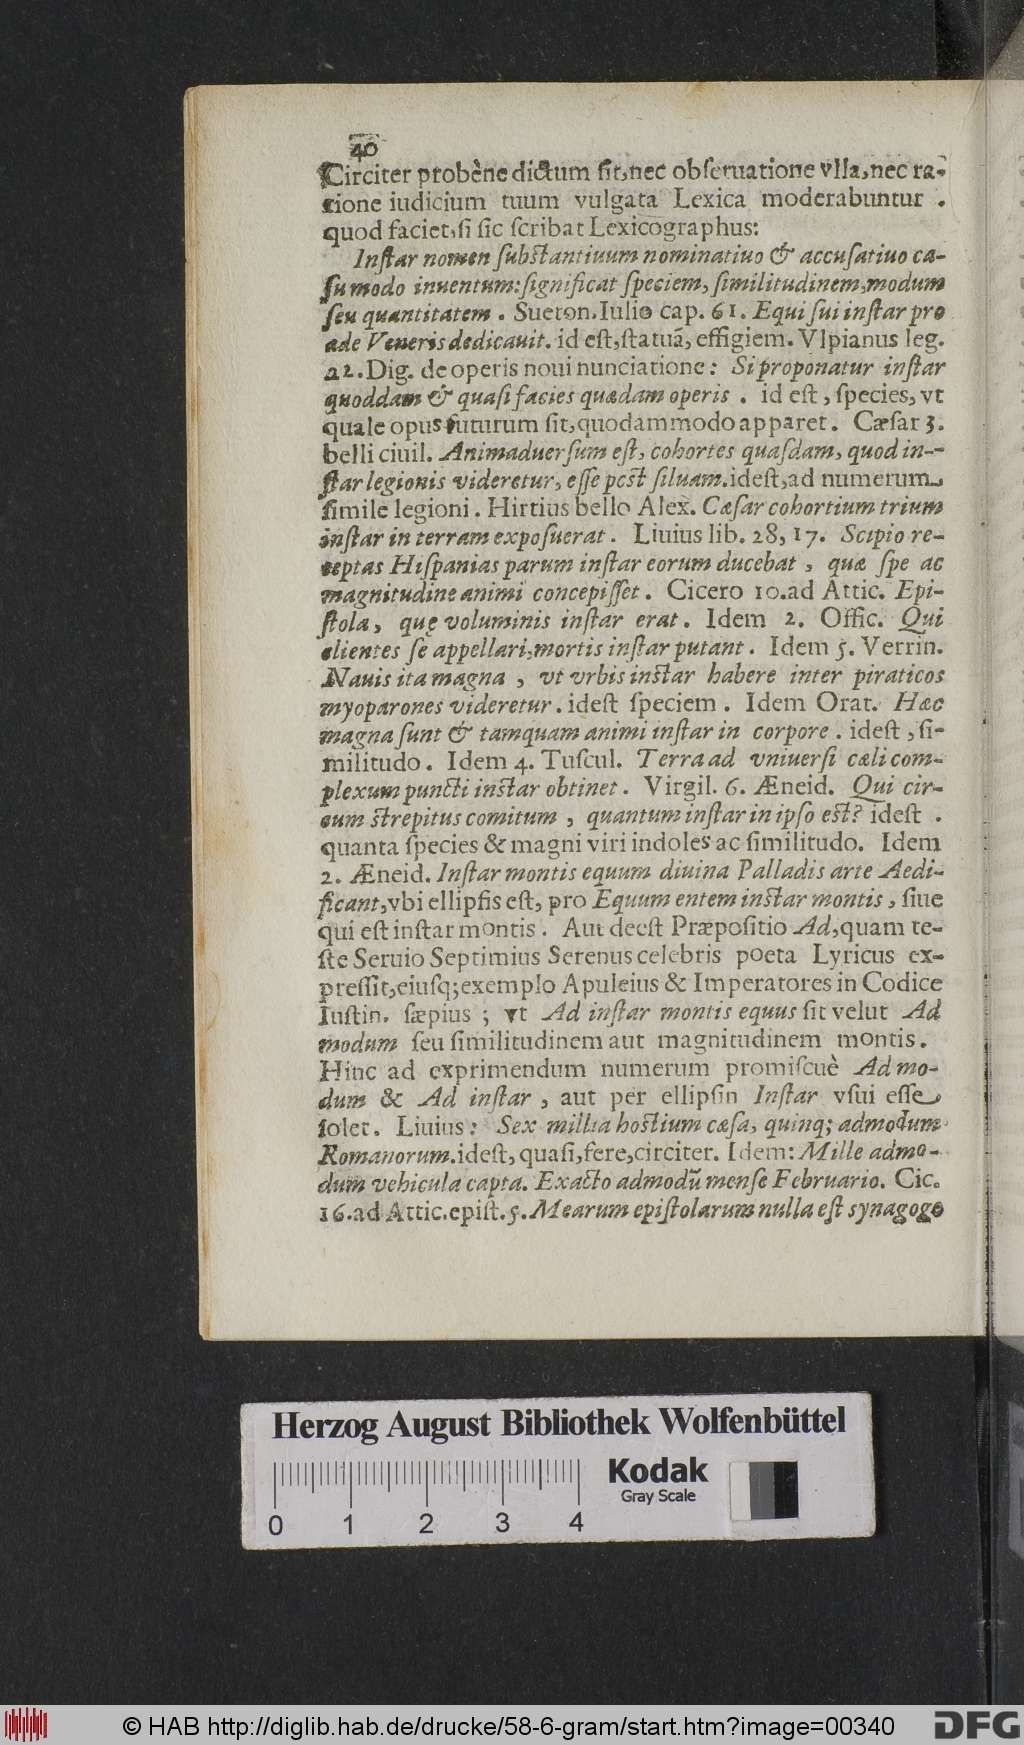 40
Circiter probène dictum sit, nec obseruatione vlla, nec ra-
tione iudicium tuum vulgata Lexica moderabuntur .
quod faciet, si sic scribat Lexicographus:
Instar nomen substantiuum nominatiuo & accusatiuo ca-
su modo inuentum: significat speciem, similitudinem, modum
seu quantitatem . Sueton. Iulio cap. 61. Equi sui instar pro
æde Veneris dedicauit. id est, statuã, effigiem. Vlpianus leg.
22. Dig. de operis noui nunciatione: Si proponatur instar
quoddam & quasi facies quædam operis . id est, species, vt
quale opus futurum sit, quodammodo apparet. Cæsar 3.
belli ciuil. Animaduersum est, cohortes quasdam, quod in-
star legionis videretur, esse post siluam. idest, ad numerum
simile legioni. Hirtius bello Alex. Cæsar cohortium trium
instar in terram exposuerat. Liuius lib. 28, 17. Scipio re-
ceptas Hispanias parum instar eorum ducebat, quæ spe ac
magnitudine animi concepisset. Cicero 10. ad Attic. Epi-
stola, quę voluminis instar erat. Idem 2. Offic. Qui
clientes se appellari, mortis instar putant. Idem 5. Verrin.
Nauis ita magna, vt vrbis instar habere inter piraticos
myoparones videretur. idest speciem. Idem Orat. Hæc
magna sunt & tamquam animi instar in corpore. idest, si-
militudo. Idem 4. Tuscul. Terra ad vniuersi cæli com-
plexum puncti instar obtinet. Virgil. 6. Æneid. Qui cir-
cum strepitus comitum, quantum instar in ipso est? idest .
quanta species & magni viri indoles ac similitudo. Idem
2. Æneid. Instar montis equum diuina Palladis arte Aedi-
ficant, vbi ellipsis est, pro Equum entem instar montis, siue
qui est instar montis. Aut deest Præpositio Ad, quam te-
ste Seruio Septimius Serenus celebris poeta Lyricus ex-
pressit, eiusq; exemplo Apuleius & Imperatores in Codice
Iustin. sæpius; vt Ad instar montis equus sit velut Ad
modum seu similitudinem aut magnitudinem montis.
Hinc ad exprimendum numerum promiscuè Ad mo-
dum & Ad instar, aut per ellipsin Instar vsui esse
solet. Liuius: Sex millia hostium cæsa, quinq; admodum
Romanorum. idest, quasi, fere, circiter. Idem: Mille admo-
dum vehicula capta. Exacto admodũ mense Februario. Cic.
16. ad Attic. epist. 5. Mearum epistolarum nulla est synagoge
Herzog August Bibliothek Wolfenbüttel
Kodak
Gray Scale
0 1 2 3 4
© HAB http://diglib.hab.de/drucke/58-6-gram/start.htm?image=00340
DFG